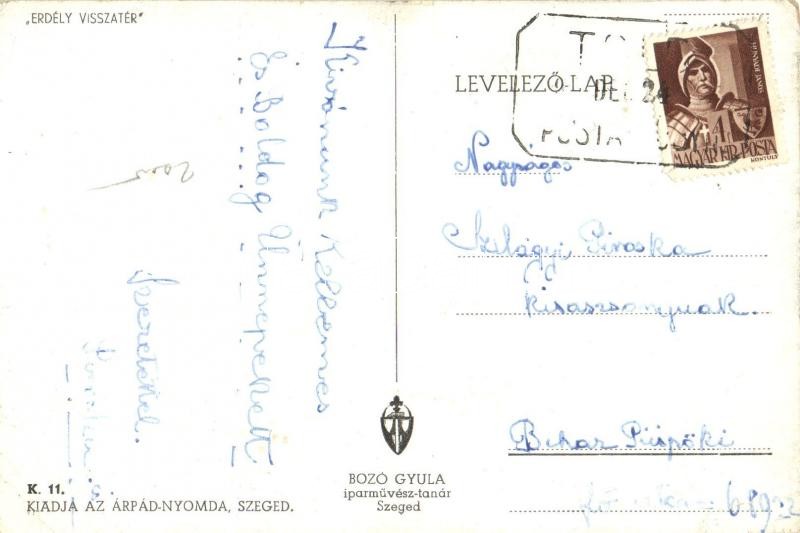 „ERDÉLY VISSZATÉR"
Kívánunk Kellemes
És Boldog Ünnepeket
Szeretettel.
K. 11.
KIADJA AZ ÁRPÁD-NYOMDA, SZEGED.
BOZÓ GYULA
iparművész-tanár
Szeged
LEVELEZŐ-LAP
DEC 24
POSTA
HUNYADI JÁNOS
4
MAGYAR KIR. POSTA
KONTULY
Nagyságos
Szilágyi Piroska
kisasszonynak.
Bihar Püspöki